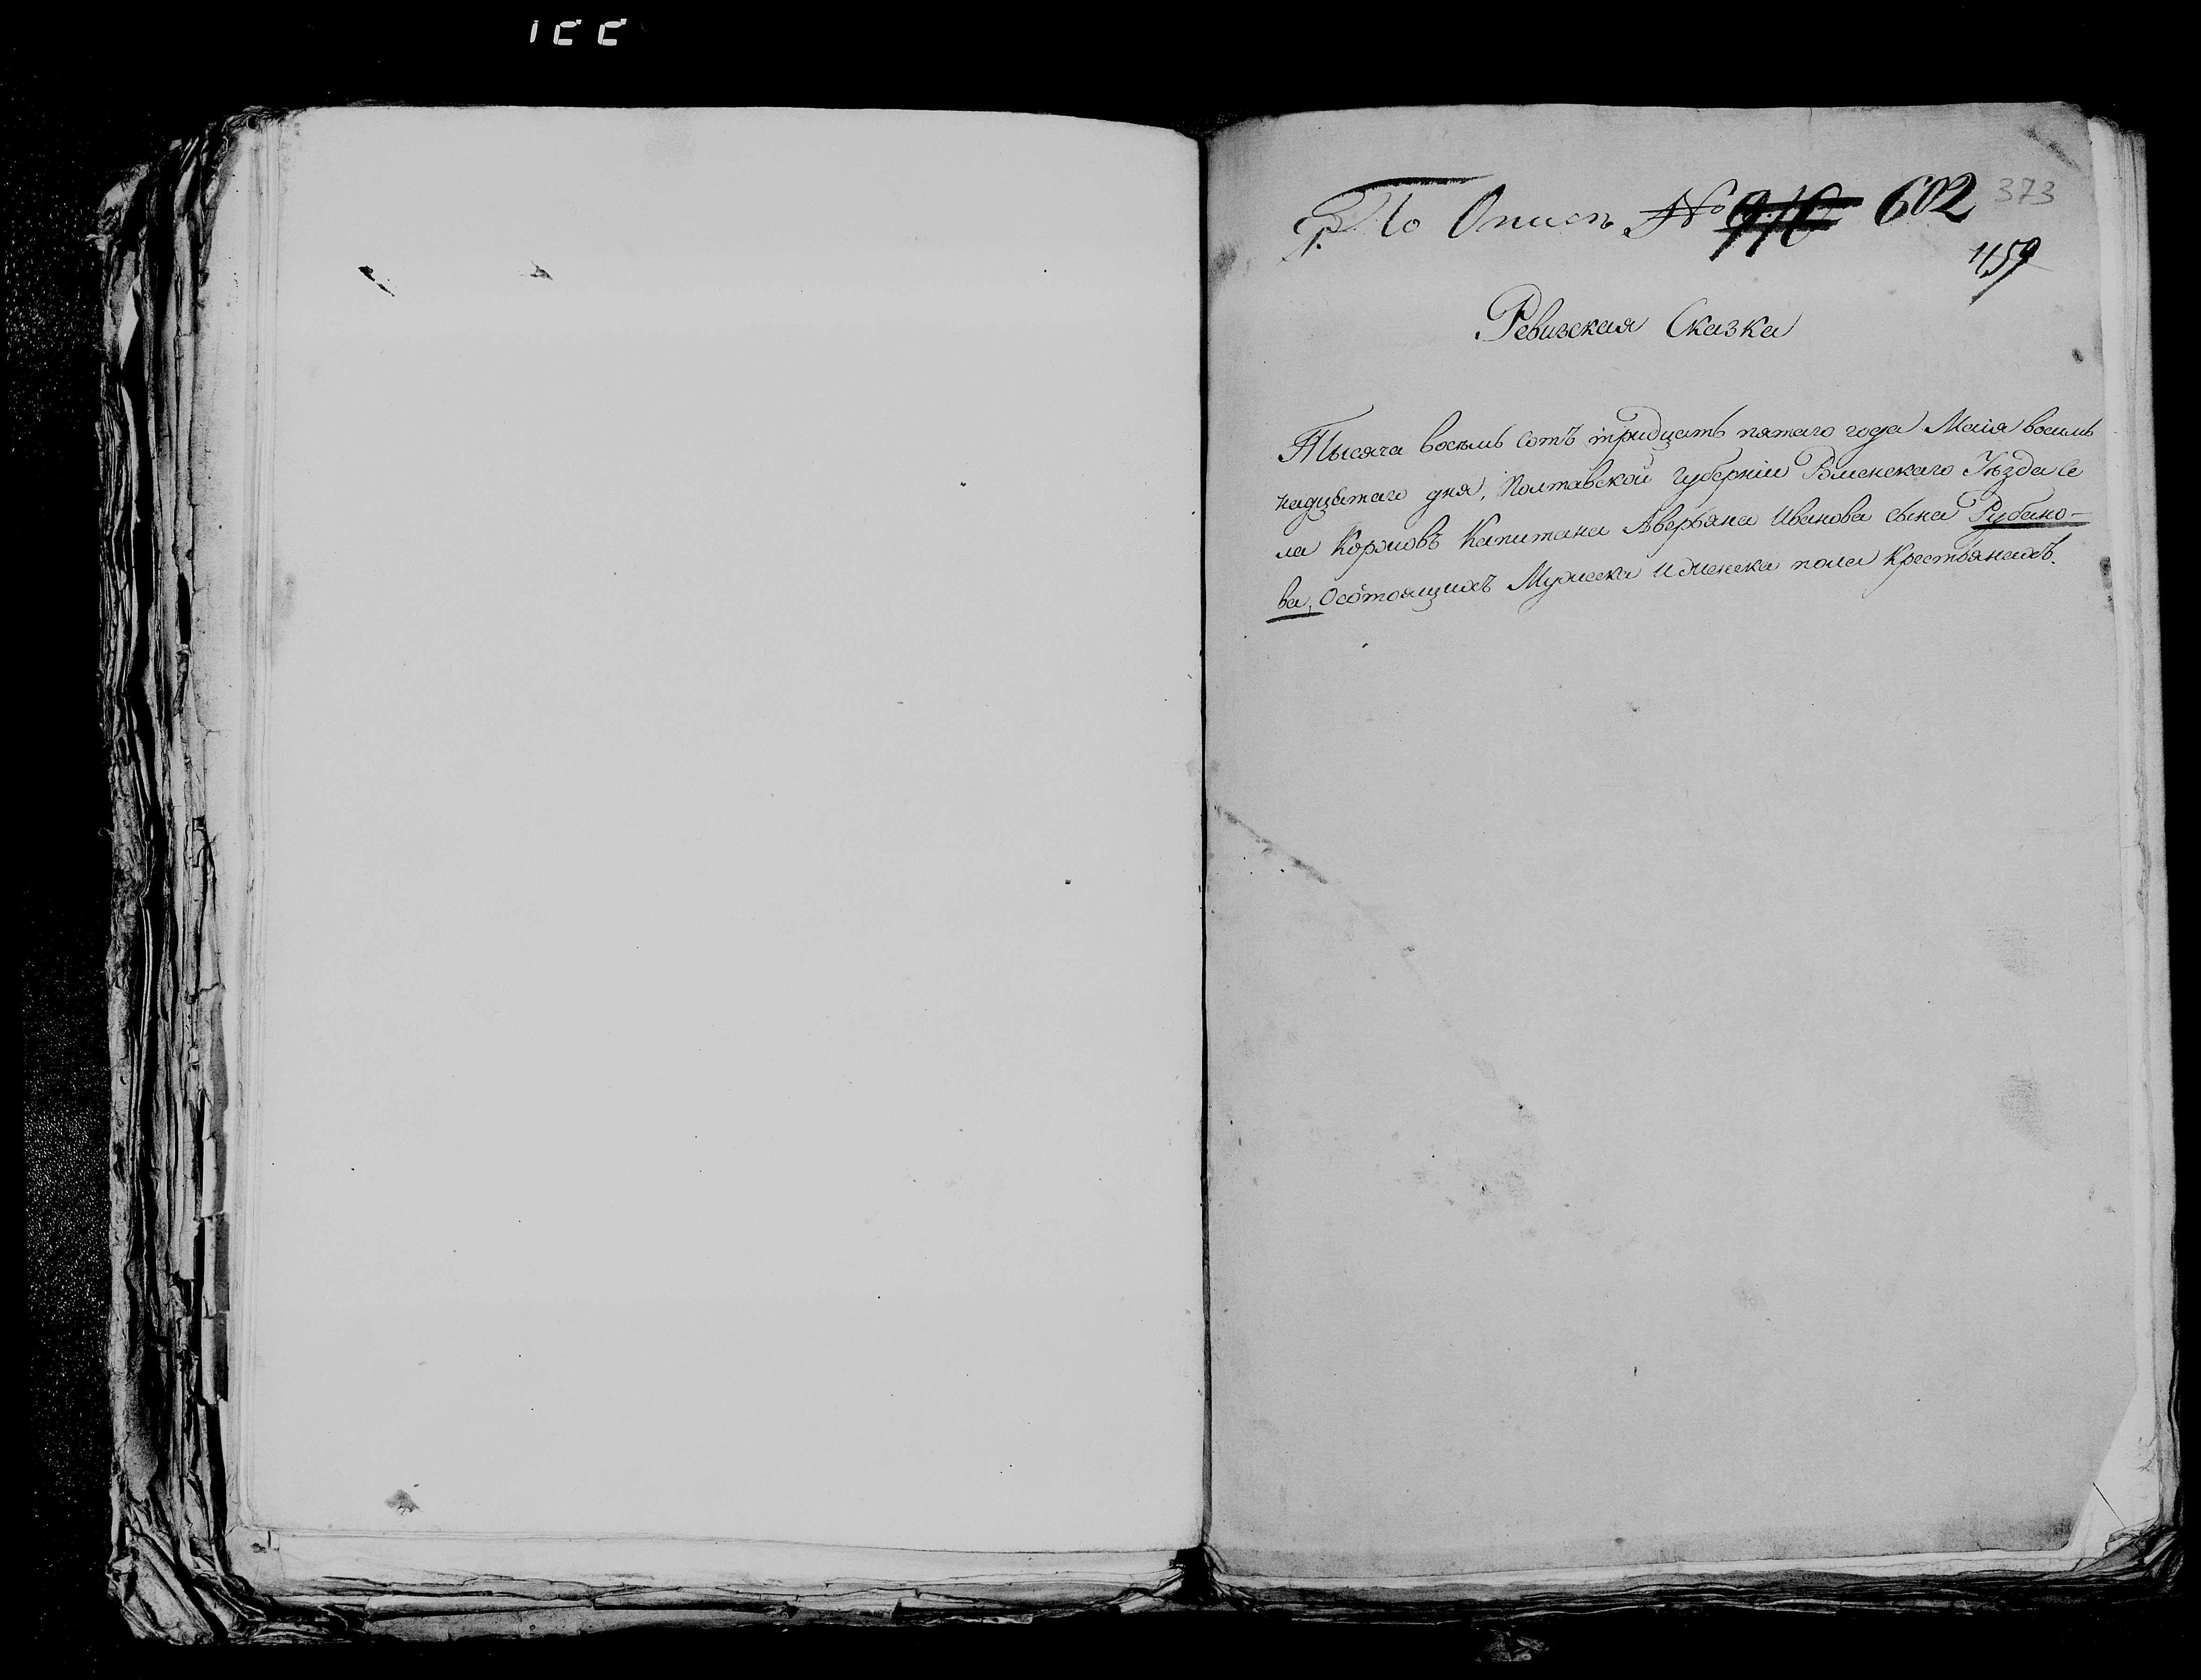 По Описи № 916 602 373
459
Ревизская Сказка
Тысяча восемь сотъ тридцать пятаго года Маія восемь
надцатаго дня, Полтавской Губерніи Роменскаго Уѣзда Се
ла Коровъ Капитана Аверьяна Иванова сына Рубано-
ва, О состоящихъ Мужеска и женска пола Крестьянахъ.